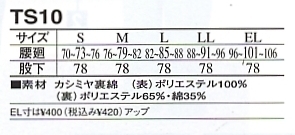 TS10
サイズ S M L LL EL
腰廻 70~73~76 76~79~82 82~85~88 88~91~96 96~101~106
股下 78 78 78 78 78
■素材 カシミヤ裏綿 (表)ポリエステル100%
(裏)ポリエステル65%・綿35%
EL寸は¥400(税込み¥420)アップ